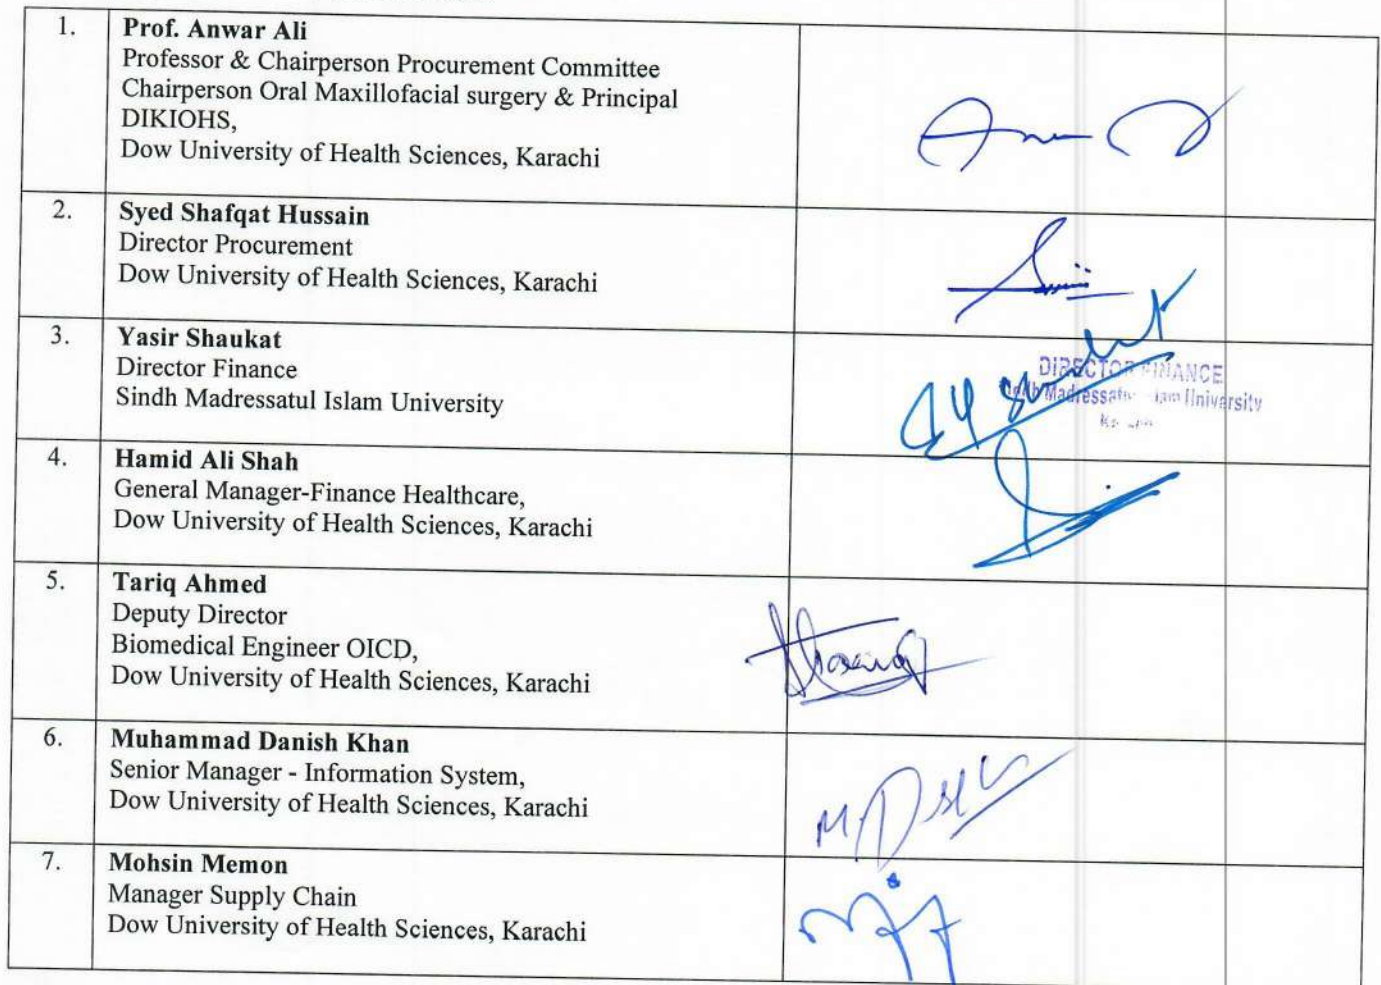 1.
Prof. Anwar Ali
Professor & Chairperson Procurement Committee
Chairperson Oral Maxillofacial surgery & Principal
DIKIOHS,
Dow University of Health Sciences, Karachi
2.
Syed Shafqat Hussain
Director Procurement
Dow University of Health Sciences, Karachi
3.
Yasir Shaukat
Director Finance
Sindh Madressatul Islam University
DIRECTOR FINANCE
Madressatu University
4.
Hamid Ali Shah
General Manager-Finance Healthcare,
Dow University of Health Sciences, Karachi
5.
Tariq Ahmed
Deputy Director
Biomedical Engineer OICD,
Dow University of Health Sciences, Karachi
6.
Muhammad Danish Khan
Senior Manager - Information System,
Dow University of Health Sciences, Karachi
7.
Mohsin Memon
Manager Supply Chain
Dow University of Health Sciences, Karachi